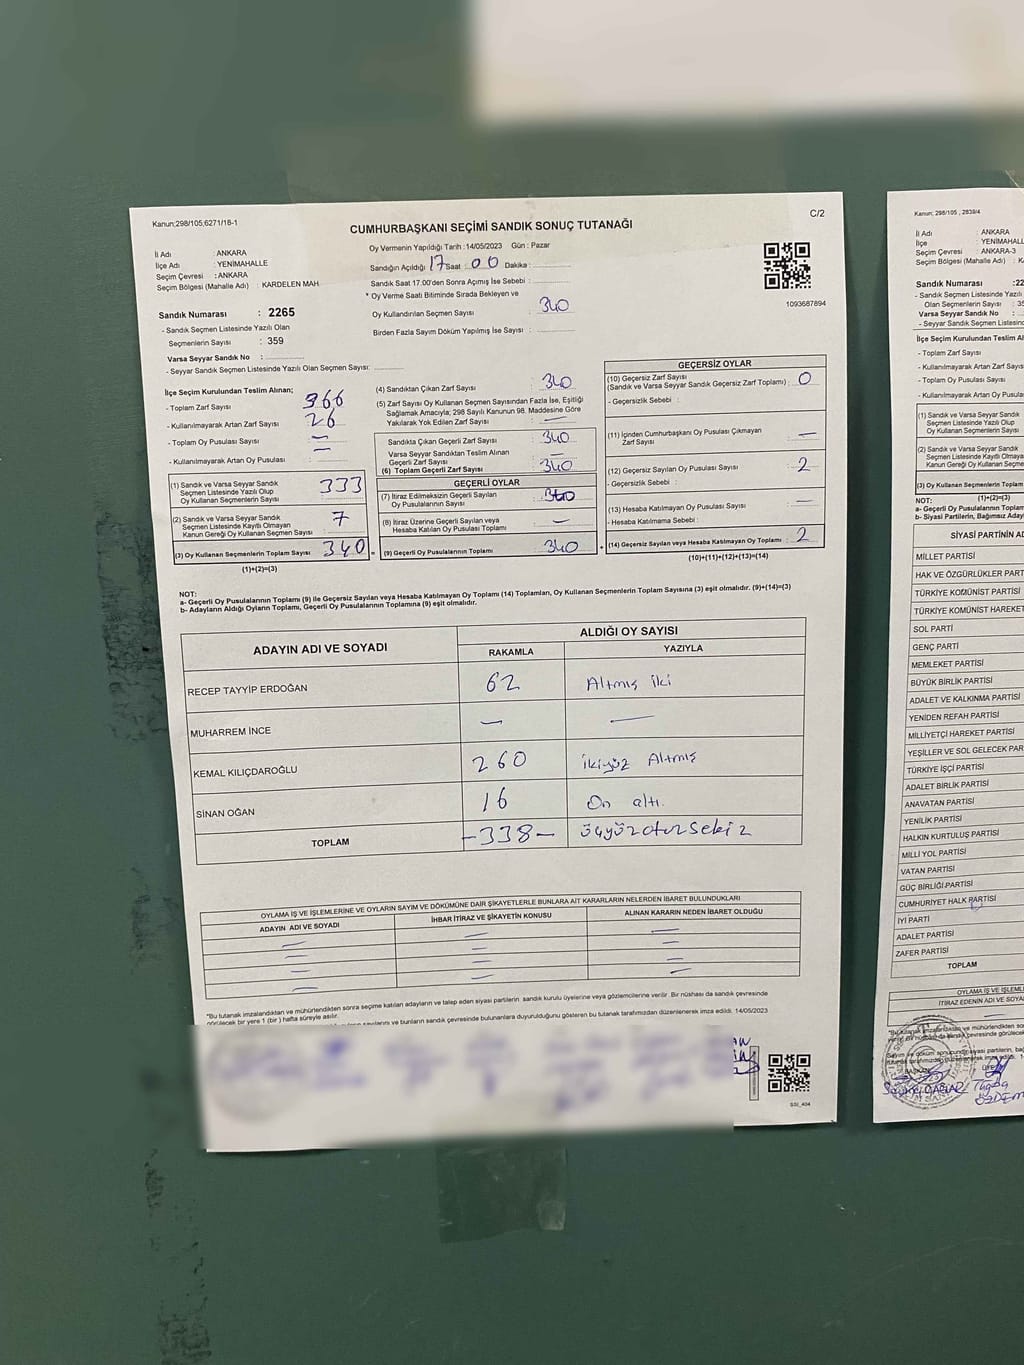 Kanun;298/105;6271/18-1
C/2
CUMHURBAŞKANI SEÇİMİ SANDIK SONUÇ TUTANAĞI
İl Adı : ANKARA
İlçe Adı : YENİMAHALLE
Seçim Çevresi : ANKARA
Seçim Bölgesi (Mahalle Adı) : KARDELEN MAH.
Oy Vermenin Yapıldığı Tarih :14/05/2023 Gün : Pazar
Sandığın Açıldığı 17 Saat : 00 Dakika :
Sandık Saat 17.00'den Sonra Açımış İse Sebebi :
* Oy Verme Saati Bitiminde Sırada Bekleyen ve
Oy Kullandırılan Seçmen Sayısı : 340
Birden Fazla Sayım Döküm Yapılmış İse Sayısı :
1093687894
Sandık Numarası : 2265
- Sandık Seçmen Listesinde Yazılı Olan
Seçmenlerin Sayısı : 359
Varsa Seyyar Sandık No :
- Seyyar Sandık Seçmen Listesinde Yazılı Olan Seçmen Sayısı:
İlçe Seçim Kurulundan Teslim Alınan;
- Toplam Zarf Sayısı : 366
- Kullanılmayarak Artan Zarf Sayısı : 26
- Toplam Oy Pusulası Sayısı : —
- Kullanılmayarak Artan Oy Pusulası : —
(1) Sandık ve Varsa Seyyar Sandık
Seçmen Listesinde Yazılı Olup
Oy Kullanan Seçmenlerin Sayısı : 333
(2) Sandık ve Varsa Seyyar Sandık
Seçmen Listesinde Kayıtlı Olmayan
Kanun Gereği Oy Kullanan Seçmen Sayısı : 7
(3) Oy Kullanan Seçmenlerin Toplam Sayısı : 340
(1)+(2)=(3)
(4) Sandıktan Çıkan Zarf Sayısı : 340
(5) Zarf Sayısı Oy Kullanan Seçmen Sayısından Fazla İse, Eşitliği
Sağlamak Amacıyla; 298 Sayılı Kanunun 98. Maddesine Göre
Yakılarak Yok Edilen Zarf Sayısı : —
Sandıkta Çıkan Geçerli Zarf Sayısı : 340
Varsa Seyyar Sandıktan Teslim Alınan
Geçerli Zarf Sayısı : —
(6) Toplam Geçerli Zarf Sayısı : 340
GEÇERLİ OYLAR
(7) İtiraz Edilmeksizin Geçerli Sayılan
Oy Pusulalarının Sayısı : 340
(8) İtiraz Üzerine Geçerli Sayılan veya
Hesaba Katılan Oy Pusulası Toplamı : —
= (9) Geçerli Oy Pusulalarının Toplamı : 340
GEÇERSİZ OYLAR
(10) Geçersiz Zarf Sayısı
(Sandık ve Varsa Seyyar Sandık Geçersiz Zarf Toplamı) : 0
- Geçersizlik Sebebi :
(11) İçinden Cumhurbaşkanı Oy Pusulası Çıkmayan
Zarf Sayısı : —
(12) Geçersiz Sayılan Oy Pusulası Sayısı : 2
- Geçersizlik Sebebi :
(13) Hesaba Katılmayan Oy Pusulası Sayısı : —
- Hesaba Katılmama Sebebi :
+ (14) Geçersiz Sayılan veya Hesaba Katılmayan Oy Toplamı : 2
(10)+(11)+(12)+(13)=(14)
NOT:
a- Geçerli Oy Pusulalarının Toplamı (9) ile Geçersiz Sayılan veya Hesaba Katılmayan Oy Toplamı (14) Toplamları, Oy Kullanan Seçmenlerin Toplam Sayısına (3) eşit olmalıdır. (9)+(14)=(3)
b- Adayların Aldığı Oyların Toplamı, Geçerli Oy Pusulalarının Toplamına (9) eşit olmalıdır.
ADAYIN ADI VE SOYADI ALDIĞI OY SAYISI
RAKAMLA YAZIYLA
RECEP TAYYİP ERDOĞAN 62 Altmış iki
MUHARREM İNCE — —
KEMAL KILIÇDAROĞLU 260 ikiyüz Altmış
SİNAN OĞAN 16 On altı.
TOPLAM -338- üçyüz otuz sekiz
OYLAMA İŞ VE İŞLEMLERİNE VE OYLARIN SAYIM VE DÖKÜMÜNE DAİR ŞİKAYETLERLE BUNLARA AİT KARARLARIN NELERDEN İBARET BULUNDUKLARI
ADAYIN ADI VE SOYADI İHBAR İTİRAZ VE ŞİKAYETİN KONUSU ALINAN KARARIN NEDEN İBARET OLDUĞU
*Bu tutanak imzalandıktan ve mühürlendikten sonra seçime katılan adayların ve talep eden siyasi partilerin sandık kurulu üyelerine veya gözlemcilerine verilir. Bir nüshası da sandık çevresinde
görülecek bir yere 1 (bir) hafta süreyle asılır.
sayılarını ve bunların sandık çevresinde bulunanlara duyurulduğunu gösteren bu tutanak tarafımızdan düzenlenerek imza edildi. 14/05/2023
Kanun; 298/105 , 2839/4
İl Adı : ANKARA
İlçe : YENİMAHALL
Seçim Çevresi : ANKARA-3
Seçim Bölgesi (Mahalle Adı) : K
Sandık Numarası :22
- Sandık Seçmen Listesinde Yazılı
Olan Seçmenlerin Sayısı : 35
Varsa Seyyar Sandık No :
İlçe Seçim Kurulundan Teslim Al
- Toplam Zarf Sayısı
- Kullanılmayarak Artan Zarf Sayısı
- Toplam Oy Pusulası Sayısı
- Kullanılmayarak Artan Oy Pusula
(1) Sandık ve Varsa Seyyar Sandık
Seçmen Listesinde Yazılı Olup
Oy Kullanan Seçmenlerin Sayısı
(2) Sandık ve Varsa Seyyar Sandık
Seçmen Listesinde Kayıtlı Olmaya
Kanun Gereği Oy Kullanan Seçmen
(3) Oy Kullanan Seçmenlerin Toplam
(1)+(2)=(3)
NOT:
a- Geçerli Oy Pusulalarının Toplam
b- Siyasi Partilerin, Bağımsız Aday
SİYASİ PARTİNİN AD
MİLLET PARTİSİ
HAK VE ÖZGÜRLÜKLER PART
TÜRKİYE KOMÜNİST PARTİSİ
TÜRKİYE KOMÜNİST HAREKET
SOL PARTİ
GENÇ PARTİ
MEMLEKET PARTİSİ
BÜYÜK BİRLİK PARTİSİ
ADALET VE KALKINMA PARTİSİ
YENİDEN REFAH PARTİSİ
MİLLİYETÇİ HAREKET PARTİSİ
YEŞİLLER VE SOL GELECEK PAR
TÜRKİYE İŞÇİ PARTİSİ
ADALET BİRLİK PARTİSİ
ANAVATAN PARTİSİ
YENİLİK PARTİSİ
HALKIN KURTULUŞ PARTİSİ
MİLLİ YOL PARTİSİ
VATAN PARTİSİ
GÜÇ BİRLİĞİ PARTİSİ
CUMHURİYET HALK PARTİSİ
İYİ PARTİ
ADALET PARTİSİ
ZAFER PARTİSİ
TOPLAM